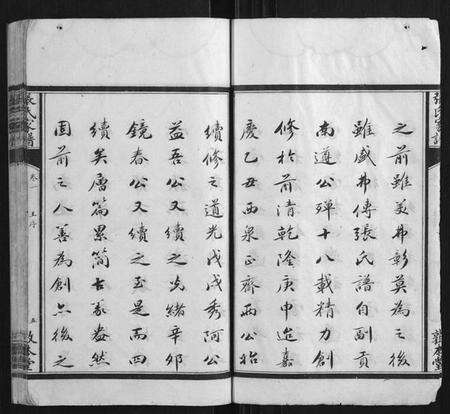 之前雖美弗彰莫為之後
雖盛弗傳張氏譜自副貢
南遵公殫十八載精力創
修於前清乾隆庚申迨嘉
慶乙丑西泉正齋兩公始
續修之道光戊戌秀阿公
益吾公又續之光緒辛卯
鏡春公又續之至是而四
續矣層篇累簡古冢盎然
固前之人善為創亦後之
張氏家譜
卷一
五